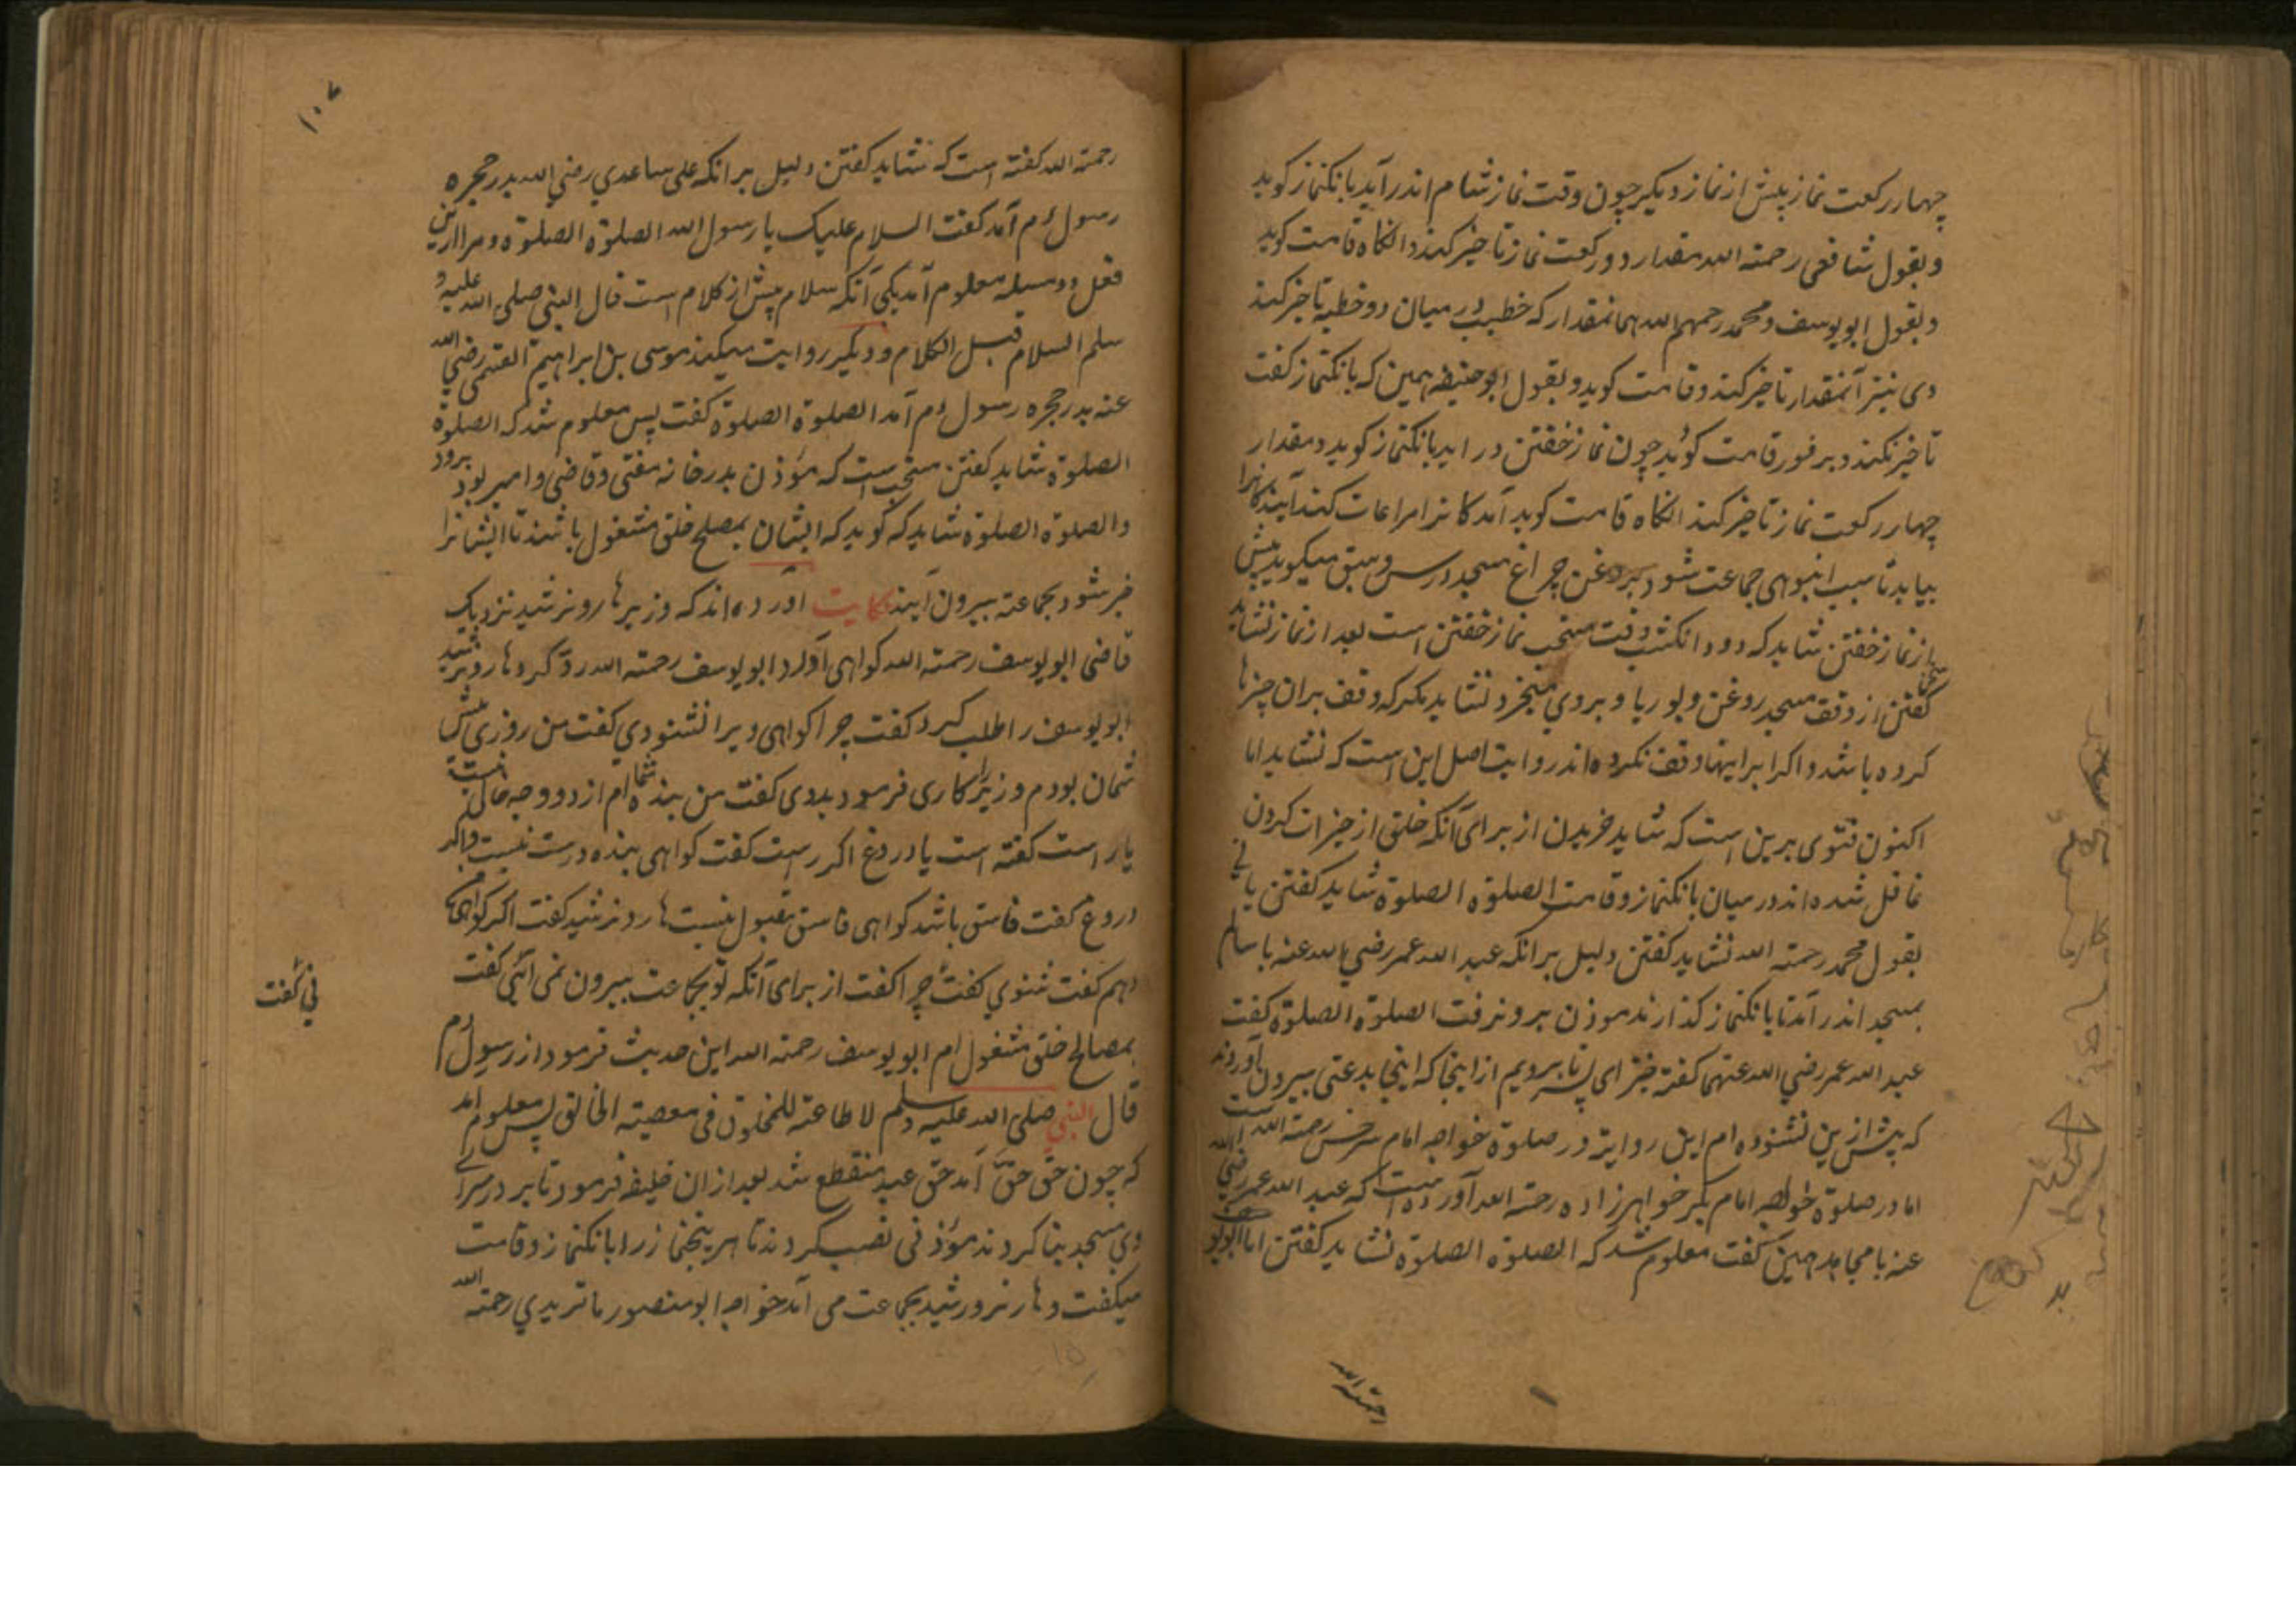 چهار رکعت نماز پیش از نماز دیکر چون وقت نماز شام اندر آید بانکنماز کوید
و بقول شافعی رحمته الله مقدار دو رکعت نماز تاخیر کند وانکاه قامت کوید
و بقول ابویوسف و محمد رحمهم الله همانمقدار که خطیب در میان دو خطبه تاخیر کند
وی نیز آنمقدار تاخیر کند و قامت کوید و بقول ابوحنیفه همین که بانکنماز کفت
تاخیر نکند و بر فور قامت کوید چون نماز خفتن در اید بانکنماز کوید و مقدار
چهار رکعت نماز تاخیر کند انکاه قامت کوید آمدکانرا مراعات کند آیندکانرا
بیاید تا سبب انبوهی جماعت شود بروغن چراغ مسجد درس و سبق میکوید پیش
از نماز خفتن شاید که دو دانکشب وقت مستحب نماز خفتن است بعد از نماز نشاید
کفتن از وقف مسجد روغن و بوریا و بردی میخرد نشاید مکر که وقف بران چیزها
کرده باشد و اکر بر اینها وقف نکرده اند روایت اصل این است که نشاید اما
اکنون فتوی برین است که شاید خریدن از برای آنکه خلق از خیرات کردن
غافل شده اند در میان بانکنماز و قامت الصلوة الصلوة شاید کفتن یا نی
بقول محمد رحمته الله نشاید کفتن دلیل بر انکه عبد الله عمر رضی الله عنه با سالم
بمسجد اندر آمد تا بانکنماز کذارند موذن برون رفت الصلوة الصلوة کفت
عبد الله عمر رضی الله عنهما کفته خیز ای پسر تا برویم از اینجا که اینجا بدعتی بیرون آوردند
که پیش ازین نشنوده ام این روایة در صلوة خواجه امام سرخسی رحمته الله است
اما در صلوة خواجه امام بکر خواهرزاده رحمته الله آورده است که عبد الله عمر رضی الله
عنه با مجاهد همین کفت معلوم شد که الصلوة الصلوة نشاید کفتن اما ابویوسف
رحمته الله
۱۰۷
رحمته الله کفته است که نشاید کفتن دلیل بر انکه علی ساعدی رضی الله بدر حجره
رسول ءم آمد کفت السلام علیک یا رسول الله الصلوة الصلوة و مرا ازین
فعل دو مسله معلوم آمد یکی آنکه سلام پیش از کلام است قال النبی صلی الله علیه و
سلم السلام قبل الکلام و دیکر روایت میکند موسی بن ابراهیم التیمی رضی الله
عنه بدر حجره رسول ءم آمد الصلوة الصلوة کفت پس معلوم شد که الصلوة
الصلوة شاید کفتن مستحب است که مؤذن بدر خانه مفتی و قاضی و امیر بود برود
والصلوة الصلوة شاید که کوید که ایشان بمصلح خلق مشغول باشند تا ایشانرا
خبر شود بجماعته بیرون آیند حکایت آورده اند که وزیر هارونرشید نزدیک
قاضی ابویوسف رحمته الله کواهی آورد ابویوسف رحمته الله رد کرد هارونرشید
ابویوسف را طلب کرد کفت چرا کواهی ویرا نشنودی کفت من روزی پیش
شمایان بودم وزیر را کاری فرمود بدوی کفت من بنده شما ام از دو وجه خالی نیست
یا راست کفته است یا دروغ اکر راست کفت کواهی بنده درست نیست و اکر
دروغ کفت فاسق باشد کواهی فاسق مقبول نیست هارونرشید کفت اکر کواهی ما
دهم کفت شنوی کفت چرا کفت از برای آنکه تو بجماعت بیرون نمی آئی کفت
نی کفت
بمصالح خلق مشغول ام ابویوسف رحمته الله این حدیث فرمود از رسول ءم
قال النبی صلی الله علیه وسلم لا طاعته للمخلوق فی معصیته الخالق پس معلوم امد
که چون حق حق آمد حق عبد منقطع شد بعد از ان خلیفه فرمود تا بر در سرای
وی مسجد بنا کردند مؤذنی نصب کردند تا هر پنجنماز را بانکنماز و قامت
میکفت و هارنرورشید بجماعت می آمد خواجه ابو منصور ماتریدی رحمته الله
۱۵